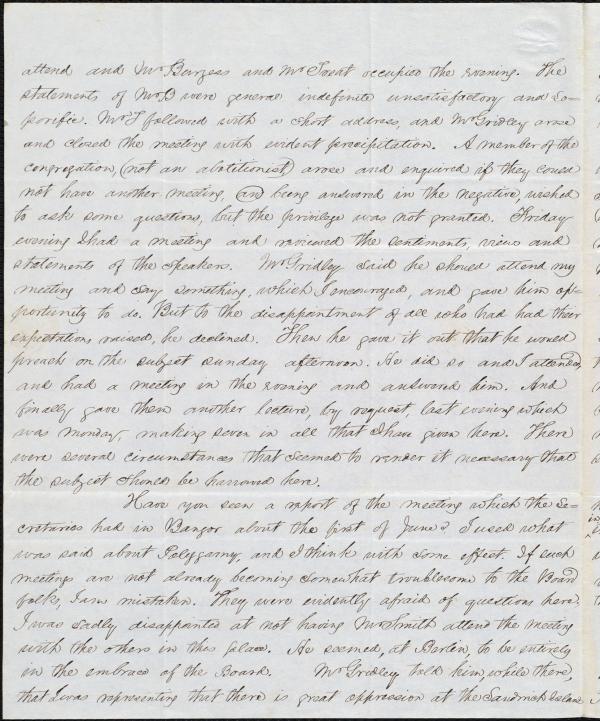 attend and Mr Burgess and Mr Treat occupied the evening. The
statements of Mr B were general indefinite unsatisfactory and so=
porific. Mr T followed with a short address, and Mr Gridley arose
and closed the meeting with evident precipitation. A member of the
congregation, (not an abolitionist) arose and enquired if they could
not have another meeting, and being answered in the negative, wished
to ask some questions, but the privilege was not granted. Friday
evening I had a meeting and reviewed the sentiments, views and
statements of the speakers. Mr Gridley said he should attend my
meeting and say something, which I encouraged, and gave him op=
portunity to do. But to the disappointment of all who had had their
expectations raised, he declined. Then he gave it out that he would
preach on the subject sunday afternoon. He did so and I attended,
and had a meeting in the evening and answered him. And
finally gave them another lecture, by request, last evening which
was monday, making seven in all that I have given here. There
were several circumstances that seemed to render it necessary that
the subject should be harrowed here.
Have you seen a report of the meeting which the Se=
cretaries had in Bangor about the first of June? I used what
was said about Polygamy, and I think with some effect. If such
meetings are not already becoming somewhat troublesome to the Board
folks, I am mistaken. They were evidently afraid of questions here.
I was sadly disappointed at not having Mr Smith attend the meeting
with the others in this place. He seemed, at Berlin, to be entirely
in the embrace of the Board. Mr Gridley told him, while there,
that I was representing that there is great oppression at the Sandwich